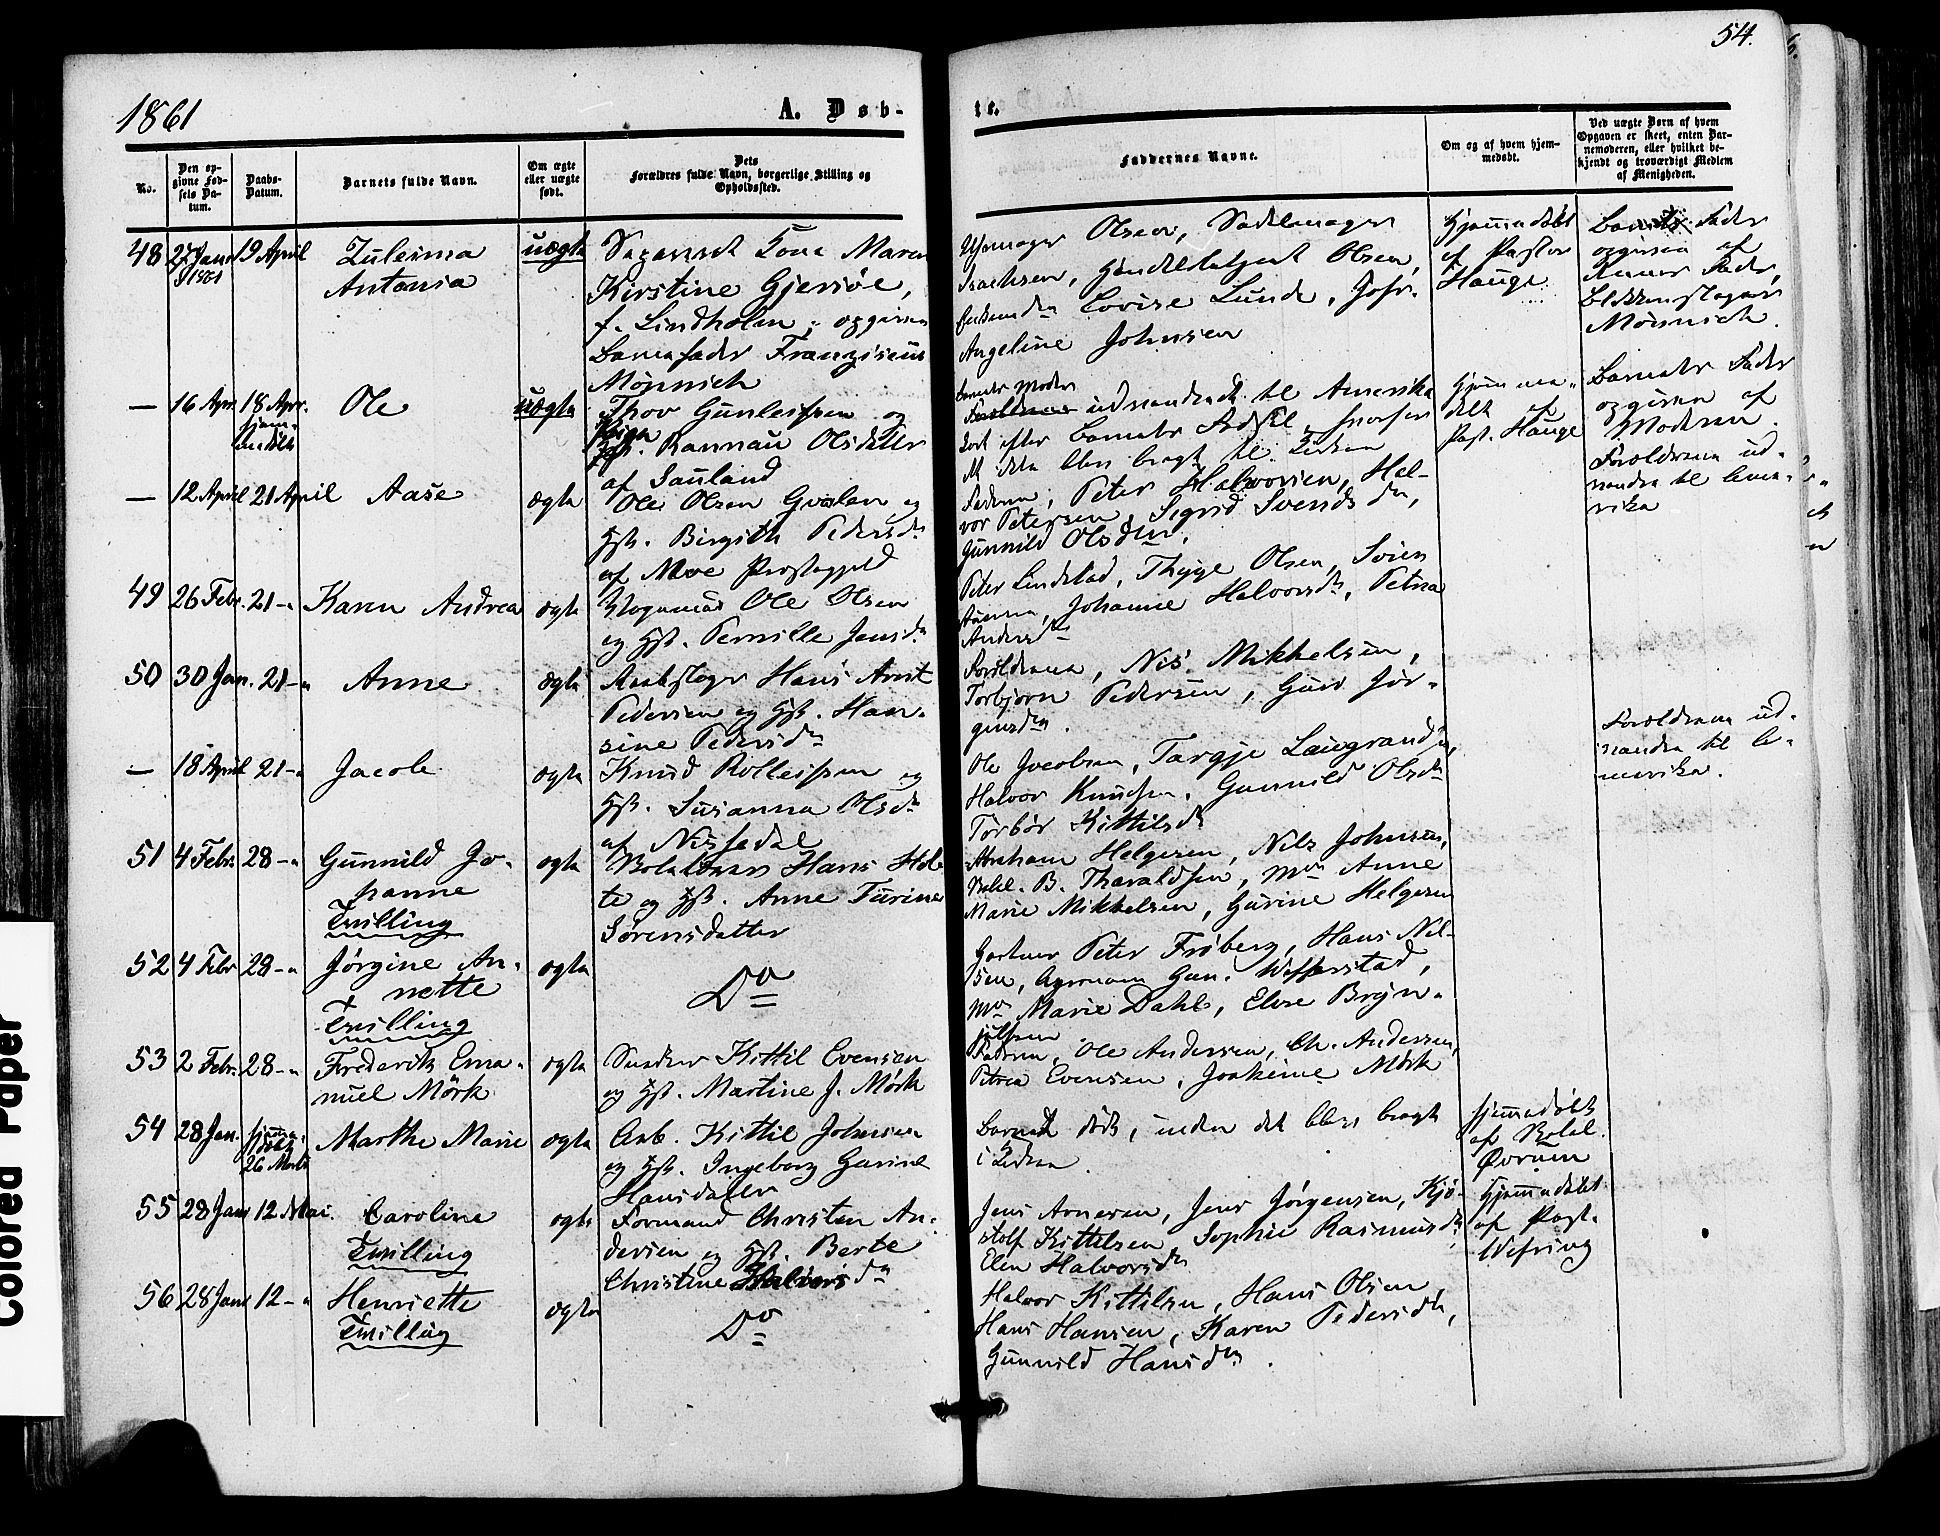 54.
1861
A. Døb-
te.
No.
Den opgivne Fødsels Datum.
Daabs-Datum.
Barnets fulde Navn.
Om ægte eller uægte født.
Dets Forældres fulde Navn, borgerlige Stilling og Opholdssted.
Faddernes Navne.
Om og af hvem hjemmedøbt.
Ved uægte Børn af hvem Opgaven er skeet, enten Barnemoderen, eller hvilket bekjendt og troværdigt Medlem af Menigheden.
48 27 Janr 1861 19 April
Zuleima
Antonia
uægte
Tona Maren
Kirstine Gjersøe,
f. Lindholm, opgiven
Barnefader Franziscus
Mønnich
Uhrmager Olsen, Sadelmager
Isachsen, Handelsbetjent Olsen,
Lovise Lunde, Jofr.
Angeline Johnsen
Hjemmedøbt
af Pastor
Hauge.
Barnets Fader
opgiven af
Fader,
Mønnich.
— 16 Apr. 18 Apr.
hjemmedøbt
Ole
uægte
Thov Gunleifsen og
Pige Rannau Olsdatter
af Sauland
Barnets Moder
udvandrede til Amerika
kort efter Barnets Fødsel, hvorfor
det ikke blev bragt til Kirken
Hjemmedøbt af
Past. Hauge
Barnets Fader
opgiven af
Moderen.
— 12 April 21 April
Aase
ægte
Ole Olsen Gvalen og
Hst. Birgith Pedersdr
af Moe Præstegjeld
Faderen, Peter Halvorsen, Hal-
vor Petersen, Sigrid Svendsdr,
Gunnild Olsdtr.
Forældrene ud-
vandre til Ame-
rika
49 26 Febr. 21 –"
Karen Andrea
ægte
Ole Olsen
og Hst. Pernille Jensdr
Peter Lindstad, Thyge Olsen, Svien
Johanne Halvorsdr, Petrea
Andersdr
50 30 Jan. 21 –"
Anne
ægte
Hans Arnt
Pedersen og Hst. Han-
sine Pedersdr
Forældrene, Nis Mikkelsen,
Torbjørn Pedersen, Guro Jør-
gensdr.
— 18 April 21 –"
Jacob
ægte
Knud Rolleifsen og
Hst. Susanna Olsdr
af Nissedal
Ole Jacobsen, Targje Laugrandsen,
Halvor Knudsen, Gunnild Olsdr
Torbør Kittilsdr
Forældrene ud-
vandre til A-
merika.
51 4 Febr. 28 –"
Gunnild Jo-
hanne
Tvilling
ægte
Hans Hol-
te og Hst. Anne Turine
Sørensdatter
Abraham Helgesen, Nils Johnsen,
B. Tharaldsen, Md Anne
Marie Mikkelsen, Gurine Helgesen
52 4 Febr 28 –"
Jørgine An-
nette
Tvilling
ægte
Do
Gartner Peter Frøberg, Hans Niel-
sen, Agronom Gun. Wefferstad,
Md Marie Dahl, Elise Bryn-
julfsen
53 2 Febr. 28 –"
Frederik Ema-
nuel Mörk
ægte
Snedker Kittil Evensen
og Hst. Martine J. Mörk
Faderen, Ole Andersen, Ch. Andersen,
Petrea Evensen, Joakime Mörk
54 28 Jan. hjemmedøbt 26 Marts
Marthe Marie
ægte
Arb. Kittil Johnsen
og Hst. Ingeborg Gurine
Hansdatter
Barnet døde, inden det blev bragt
i Kirken.
hjemmedøbt
af
Øvrum
55 28 Janr 12 Mai.
Caroline
Tvilling
ægte
Formand Christen An-
dersen og Hst. Berte
Christine Halvorsdr
Jens Arnesen, Jens Jørgensen, Kjø-
stolf Kittilsen, Sophie Rasmusdr
Elen Halvorsdr
Hjemmedøbt
af Past.
Wefring
56 28 Janr 12 –"
Henriette
Tvilling
ægte
Do
Halvor Kittilsen, Hans Olsen
Hans Hansen, Karen Pedersdr,
Gunnild Hansdr.
Colored Paper